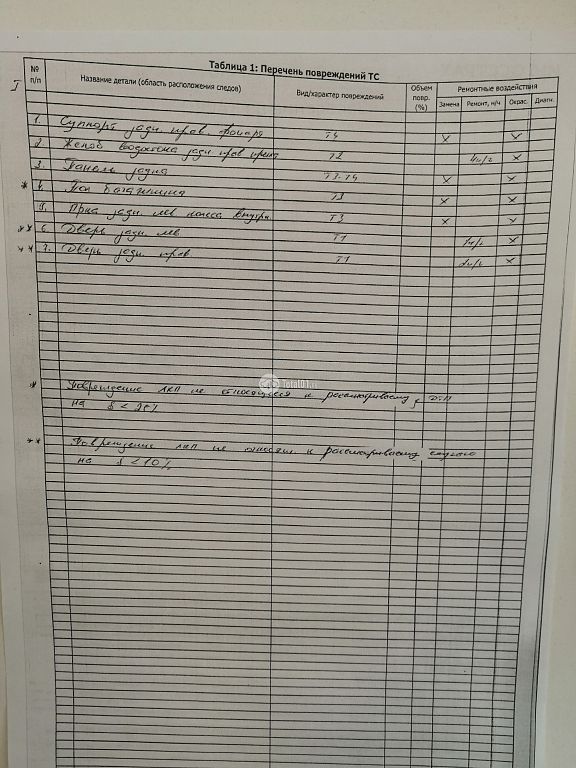 Таблица 1: Перечень повреждений ТС
№ п/п Название детали (область расположения следов) Вид/характер повреждений Объем повр. (%) Ремонтные воздействия
Замена Ремонт, н/ч Окрас. Диагн.
1. Суппорт задн прав. фонаря Т4 X X
2. Желоб водостока задн прав крыла Т2 4н/ч X
3. Панель задка X X
* 4. Пол багажника Т3 X X
5. Арка задн лев колеса внутрн Т3 X X
** 6. Дверь задн лев Т1 X
** 7. Дверь задн прав. Т1 X
Total01.ru
* Повреждение ЛКП не относящееся к рассматриваемому ДТП
на S < 25%
** Повреждение ЛКП не относящ. к рассматриваемому случаю
на S < 10%